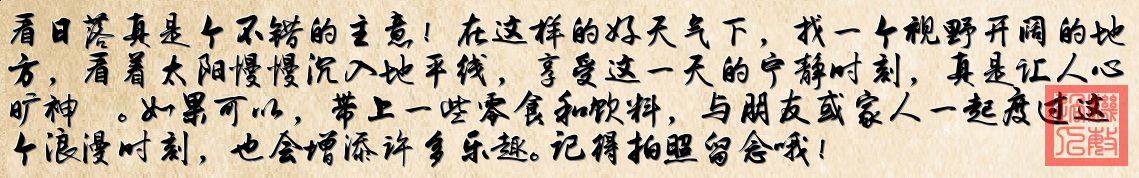 看日落真是个不错的主意！在这样的好天气下，找一个视野开阔的地
方，看着太阳慢慢沉入地平线，享受这一天的宁静时刻，真是让人心
旷神 。如果可以，带上一些零食和饮料，与朋友或家人一起度过这
个浪漫时刻，也会增添许多乐趣。记得拍照留念哦！